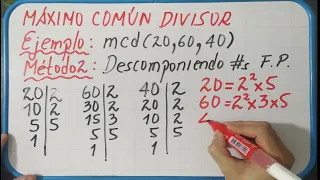 MÁXIMO COMÚN DIVISOR
Ejemplo: mcd(20,60,40)
Método2: Descomponiendo #s F.P.
20|2 60|2 40|2 20=2²×5
10|2 30|2 20|2 60=2²×3×5
5|5 15|3 10|2 4
1 5|5 5|5
1 1